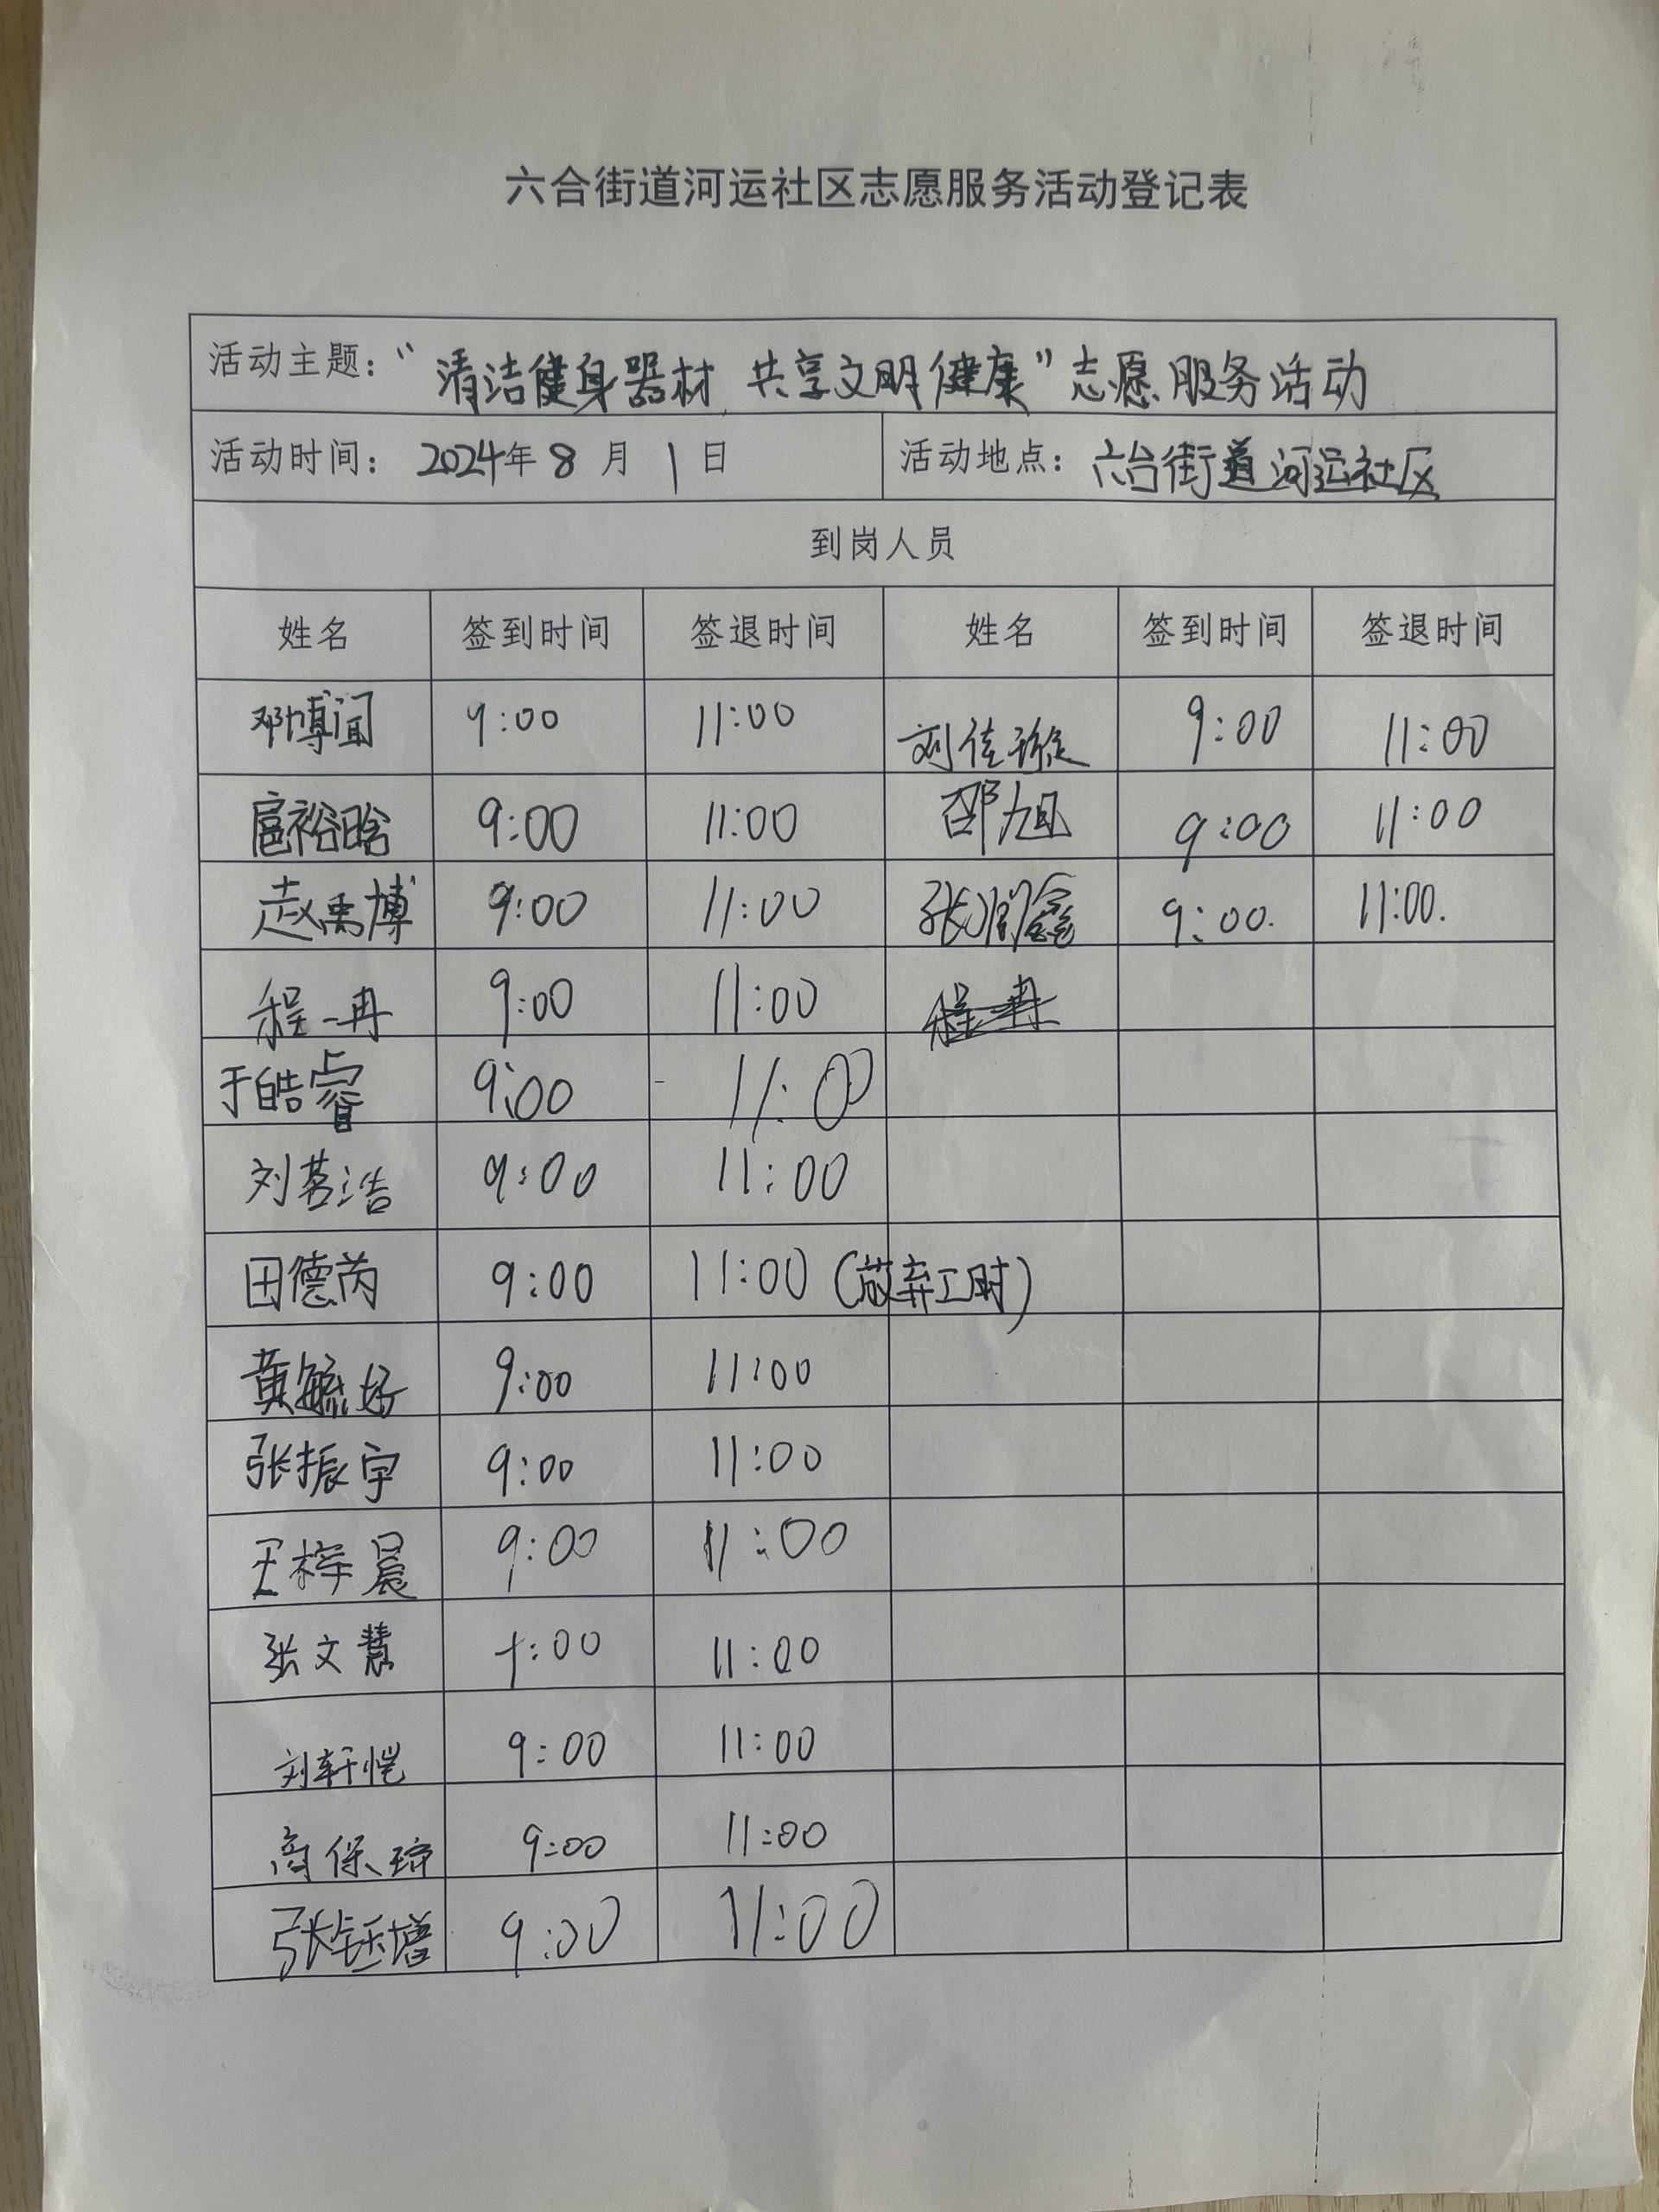 六合街道河运社区志愿服务活动登记表
活动主题：“清洁健身器材 共享文明健康”志愿服务活动
活动时间： 2024年 8 月 1 日 活动地点： 六合街道河运社区
到岗人员
姓名 签到时间 签退时间 姓名 签到时间 签退时间
邓博闻 9:00 11:00 刘佳璇 9:00 11:00
扈裕晗 9:00 11:00 邵旭 9:00 11:00
赵禹博 9:00 11:00 张润鑫 9:00. 11:00.
程一冉 9:00 11:00
于皓睿 9:00 11:00
刘茗浩 9:00 11:00
田德芮 9:00 11:00（放弃工时）
黄毓好 9:00 11:00
张振宇 9:00 11:00
王梓晨 9:00 11:00
张文慧 9:00 11:00
刘轩恺 9:00 11:00
高保琦 9:00 11:00
张钰增 9:00 11:00